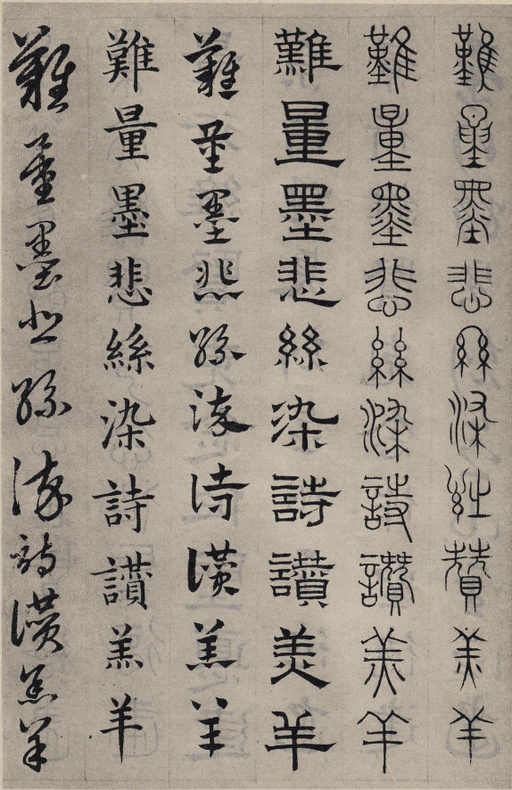 難量墨悲絲染詩讚羔羊
難量墨悲絲染詩讚羔羊
難量墨悲絲染詩讚羔羊
難量墨悲絲染詩讚羔羊
難量墨悲絲染詩讚羔羊
難量墨悲絲染詩讚羔羊